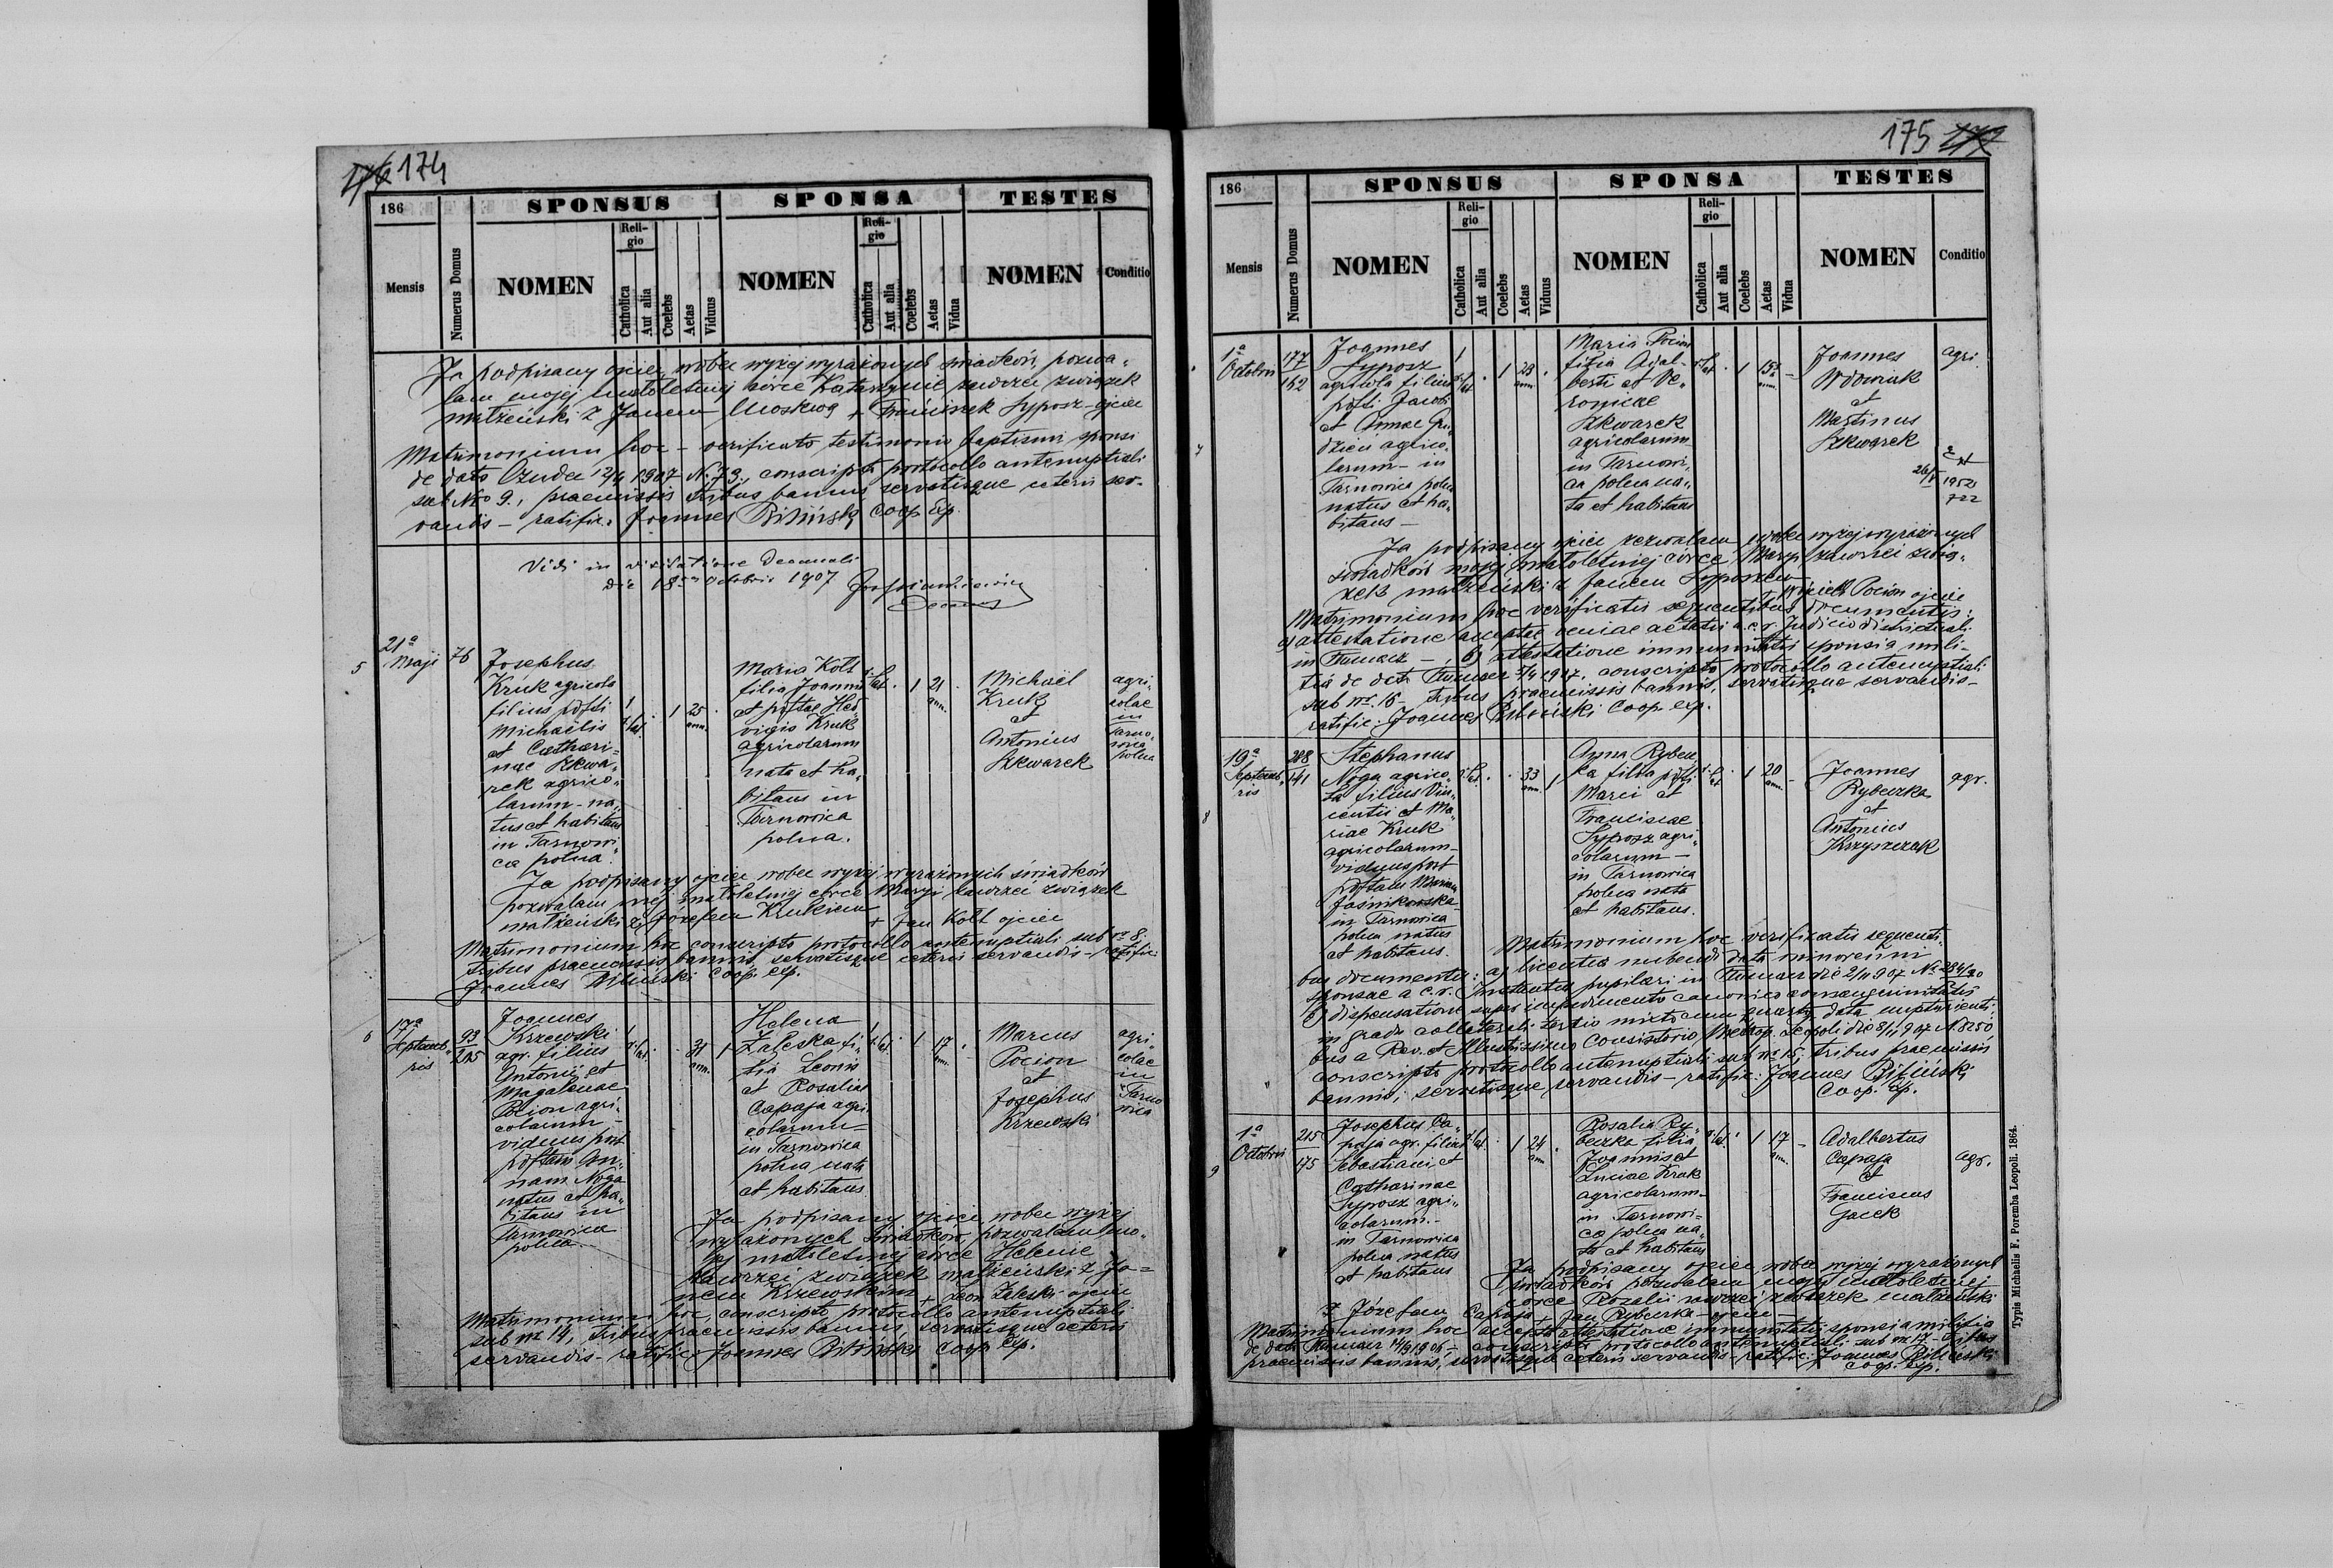 174
186
SPONSUS
SPONSA
TESTES
Mensis
Numerus Domus
NOMEN
Religio
Catholica
Aut alia
Coelebs
Aetas
Viduus
NOMEN
Religio
Catholica
Aut alia
Coelebs
Aetas
Vidua
NOMEN
Conditio
Ja podpisany ojciec wobec wyżej wyrażonych świadków pozwa-
lam mojej małoletniej córce Katarzynie zawrzeć związek
małżeński z Janem Moskwą + Franciszek Syposz ojciec
Matrimonium hoc - verificato testimonio baptismi sponsi
de dato 1907 N. 79, conscripto protocollo antenuptiali
sub Nro 9., praemissis tribus bannis, servatisque ceteris ser-
vandis - ratific. Joannes Biliński Coop. exp.
Vidi in visitatione Decanali
die 18 Octobris 1907
Decanus
5
21a
Maji
76
Josephus
Kruk agricola
filius p߃ti
Michaëlis
et Cathari-
nae Szkwa-
rek agrico-
larum - na-
tus et habitans
in Tarnowi-
ca polna.
1
r. lat.
1
25
ann.
Maria Kott
filia Joannis
et p߃tae Hed-
vigis Kruk
agricolarum
nata et ha-
bitans in
Tarnowica
polna.
1
21
ann.
Michaël
Kruk
et
Antonius
Szkwarek
agri-
colae
in
Tarno-
wica
polna
Ja podpisany ojciec wobec wyżej wyrażonych świadków
pozwalam mej małoletniej córce Maryi zawrzeć związek
małżeński z Józefem Krukiem + Jan Kott ojciec
Matrimonium hoc conscripto protocollo antenuptiali sub nr 8.
tribus praemissis bannis, servatisque ceteris servandis - ratific.
Joannes Biliński Coop. exp.
6
17a
Septemb-
ris
93
215
Joannes
Krzewski
agr. filius
Antonii et
Magdalenae
Pocion agri-
colarum -
viduus post
An-
nam Noga
natus et ha-
bitans in
Tarnowica
polna.
31
ann.
1
Helena
Zaleska fi-
lia Leonis
et Rosaliae
Capaja agri-
colarum
in Tarnowica
polna nata
et habitans
1
17
ann.
Marcus
Pocion
et
Josephus
Krzewski
agri-
colae
in
Tarno-
wica
Ja podpisany ojciec wobec wyżej
wyrażonych świadków pozwalam mo-
jej małoletniej córce Helenie
zawrzeć związek małżeński z Ja-
nem Krzewskim + Leon Zaleski ojciec
Matrimonium hoc, conscripto protocollo antenuptiali
sub nr 14, tribus praemissis bannis, servatisque ceteris
servandis - ratific. Joannes Biliński Coop. exp.
175
186
SPONSUS
SPONSA
TESTES
Mensis
Numerus Domus
NOMEN
Religio
Catholica
Aut alia
Coelebs
Aetas
Viduus
NOMEN
Religio
Catholica
Aut alia
Coelebs
Aetas
Vidua
NOMEN
Conditio
7
1a
Octobris
177
162
Joannes
Syposz
agricola filius
Jacobi
et Annae
agrico-
larum - in
Tarnowica polna
natus et ha-
bitans -
1
28
ann.
Maria Pocion
filia Adal-
berti et Ve-
ronicae
Szkwarek
agricolarum
in Tarnowi-
ca polna na-
ta et habitans
1
ann.
Joannes
Wdowiak
et
Martinus
Szkwarek
agri.
1952
722
Ja podpisany ojciec zezwalam wobec wyżej wyrażonych
świadków mojej małoletniej córce Maryi zawrzeć zwią-
zek małżeński z Janem Syposzem - Wojciech Pocion ojciec
Matrimonium hoc verificatis sequentibus documentis:
a) attestatione acceptae veniae aetatis a c. r. Judicio districtuali
in Tłumacz - , b) attestatione immunitatis sponsi a mili-
tia de dato Tłumacz 1907. conscripto protocollo antenuptiali
sub nr. 16 - tribus praemissis bannis, servatisque servandis -
ratific. Joannes Biliński Coop. exp.
8
19a
Septemb-
ris
208
141
Stephanus
Noga agrico-
la filius Vin-
centii et Ma-
riae Kruk
agricolarum -
viduus post
Mariam
Jaśnikowska
in Tarnowica
polna natus
et habitans.
33
ann.
1
Anna Rybecz-
ka filia
Marci et
Franciscae
Syposz agri-
colarum -
in Tarnowica
polna nata
et habitans.
1
20
ann.
Joannes
Rybeczka
et
Antonius
Krzyszczak
agr.
Matrimonium hoc verificatis sequenti-
bus documentis: a) licentia nubendi data minorenni
sponsae a c. r. Instantia pupilari in Tłumacz die 2/11 907
b) dispensatione super impedimento canonico consanguinitatis
in gradu collaterali tertio mixto cum quarto data nupturienti-
bus a Rev. et Illustrissimo Consistorio Metrop. Leopoli die 8/11 907 N. 8250,
conscripto protocollo antenuptiali sub nr 15, tribus praemissis
bannis, servatisque servandis - ratific. Joannes Biliński
Coop. exp.
9
1a
Octobris
215
175
Josephus Ca-
paja agr. filius
Sebastiani et
Catharinae
Syposz agri-
colarum -
in Tarnowica
polna natus
et habitans
1
24
ann.
Rosalia Ry-
beczka filia
Joannis et
Luciae Kruk
agricolarum -
in Tarnowi-
ca polna na-
ta et habitans
1
17
ann.
Adalbertus
Capaja
et
Franciscus
Gacek
agr.
Ja podpisany ojciec wobec wyżej wyrażonych
świadków pozwalam mojej małoletniej
córce Rozalii zawrzeć związek małżeński
z Józefem Capaja - Jan Rybeczka - ojciec -
Matrimonium hoc accepta attestatione immunitatis sponsi a militia
de dato Tłumacz 1906 - conscripto protocollo antenuptiali sub nr 17 - tribus
praemissis bannis, servatisque ceteris servandis - ratific. Joannes Biliński
coop. exp.
Typis Michaelis F. Poremba Leopoli. 1864.